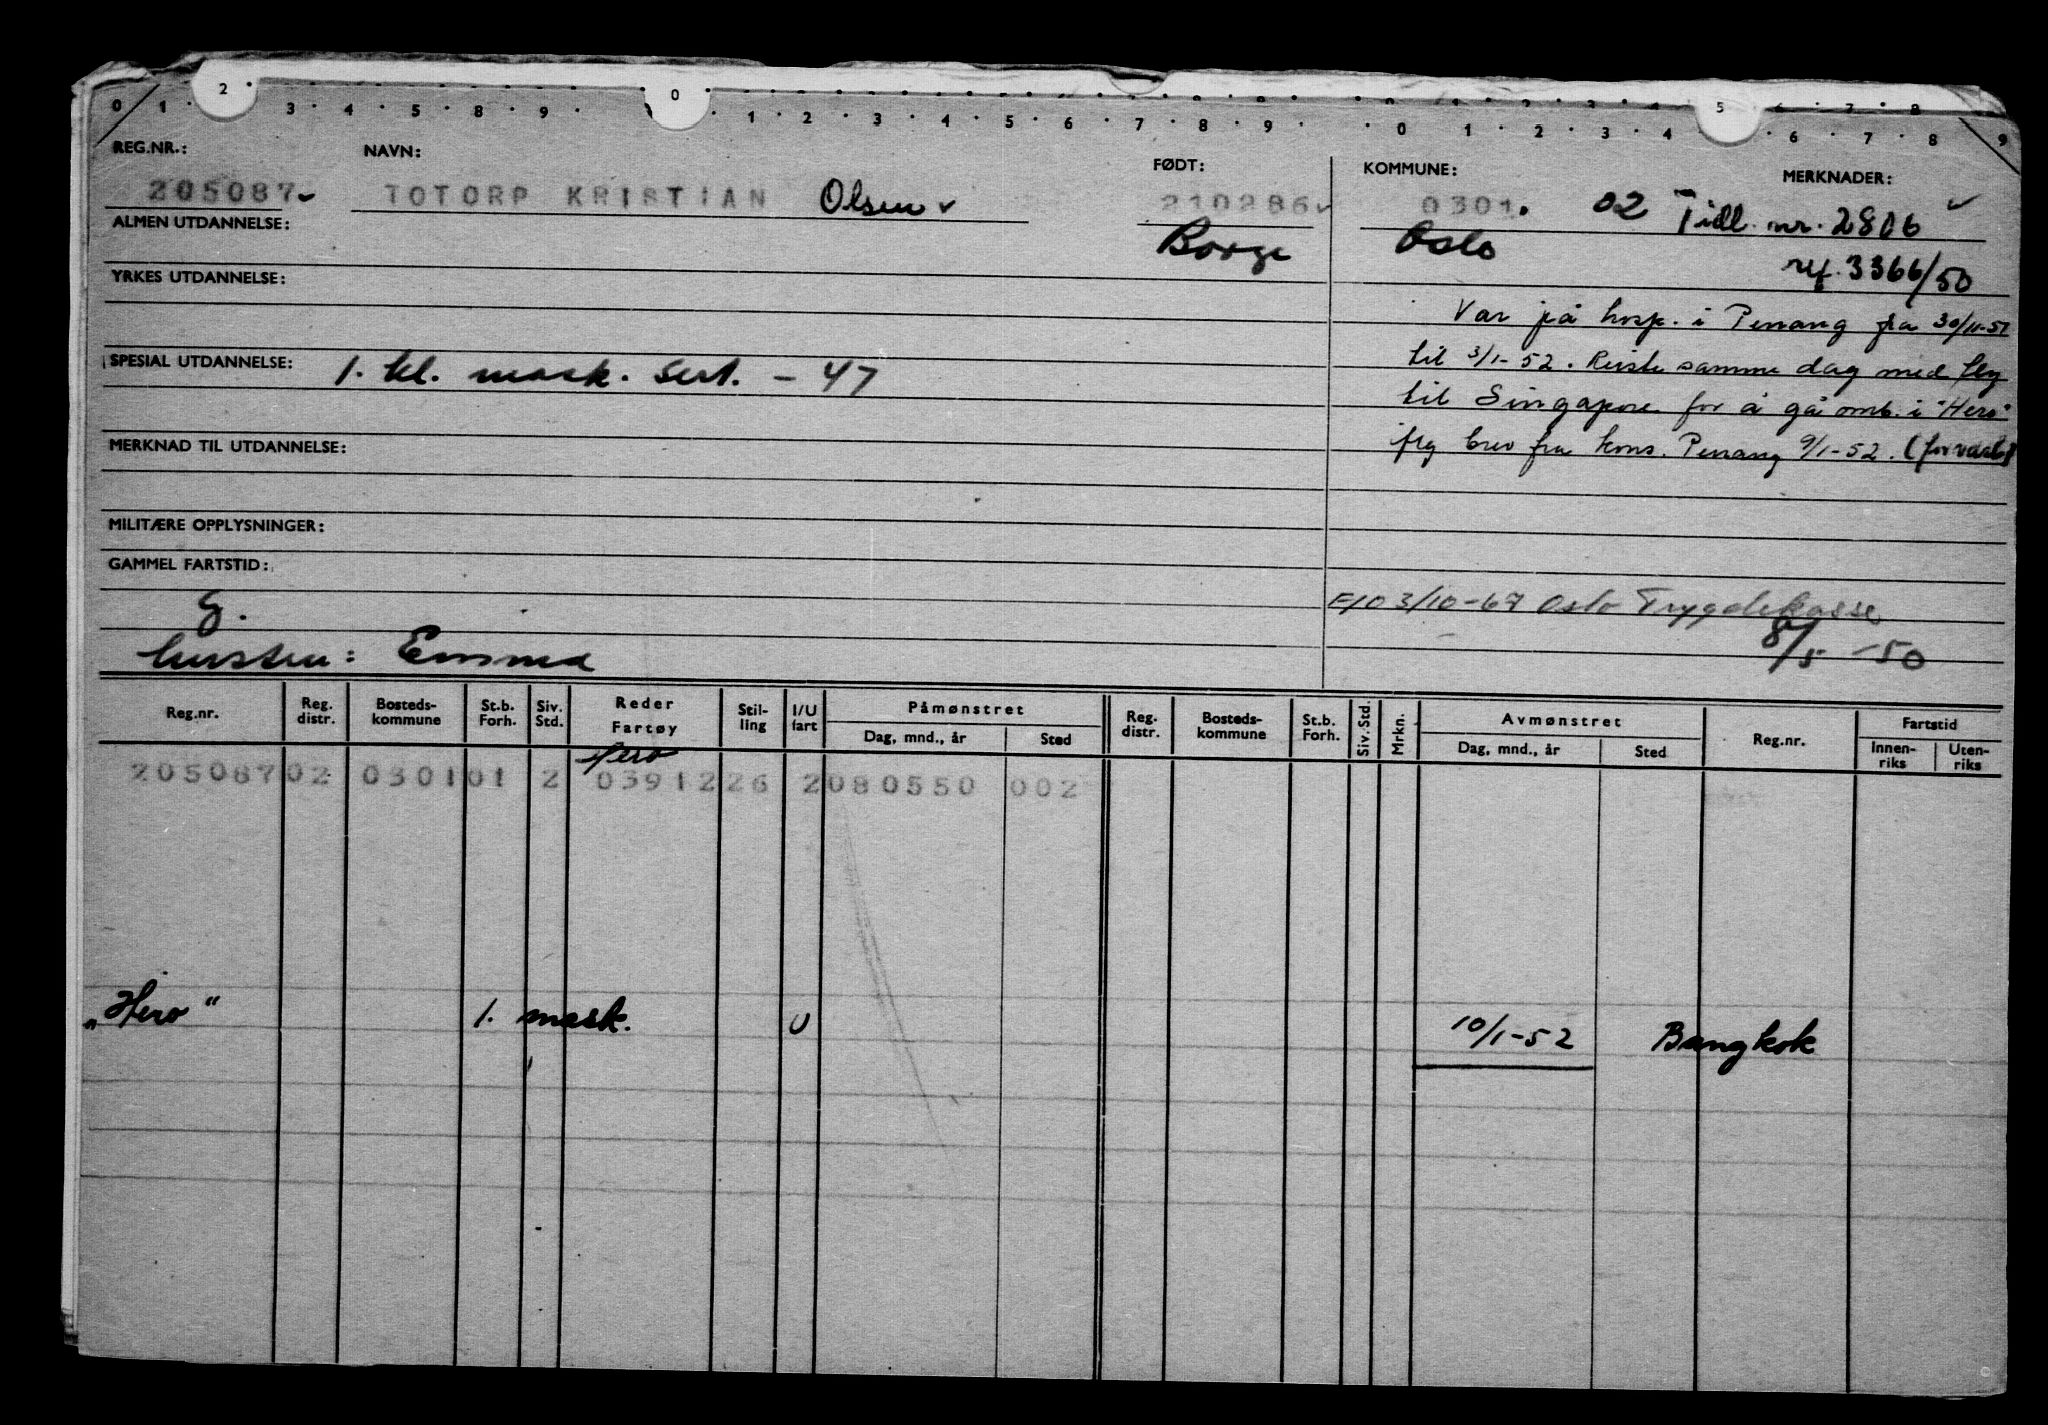 0 1 2 3 4 5 8 9 0 1 2 3 4 5 6 7 8 9 0 1 2 3 4 5 6 7 8 9
REG.NR.: NAVN: FØDT: KOMMUNE: MERKNADER:
205087 TOTORP KRISTIAN Olsen 210286 0301. 02 Tidl. nr. 2806
ALMEN UTDANNELSE: Borge Oslo
ref. 3366/50
YRKES UTDANNELSE:
Var på hosp. i Penang fra 30/11-51
SPESIAL UTDANNELSE: 1. kl. mask. sert. - 47
til 3/1-52. Reiste samme dag med fly
til Singapore for å gå omb. i "Hero"
MERKNAD TIL UTDANNELSE:
flg brev fra kons. Penang 9/1-52.
MILITÆRE OPPLYSNINGER:
GAMMEL FARTSTID:
G.
3/10-67 Oslo Trygdekasse
hustru: Emma
8/5 -50
Reg.nr. Reg. distr. Bosteds-kommune St.b. Forh. Siv. Std. Reder Fartøy Stil-ling I/U fart Påmønstret Dag, mnd., år Sted Reg. distr. Bosteds-kommune St.b. Forh. Siv. Std. Mrkn. Avmønstret Dag, mnd., år Sted Reg.nr. Fartstid Innen-riks Uten-riks
Hero
205087 02 0301 01 2 03912 26 2 080550 002
"Hero" 1. mask. U 10/1-52 Bangkok